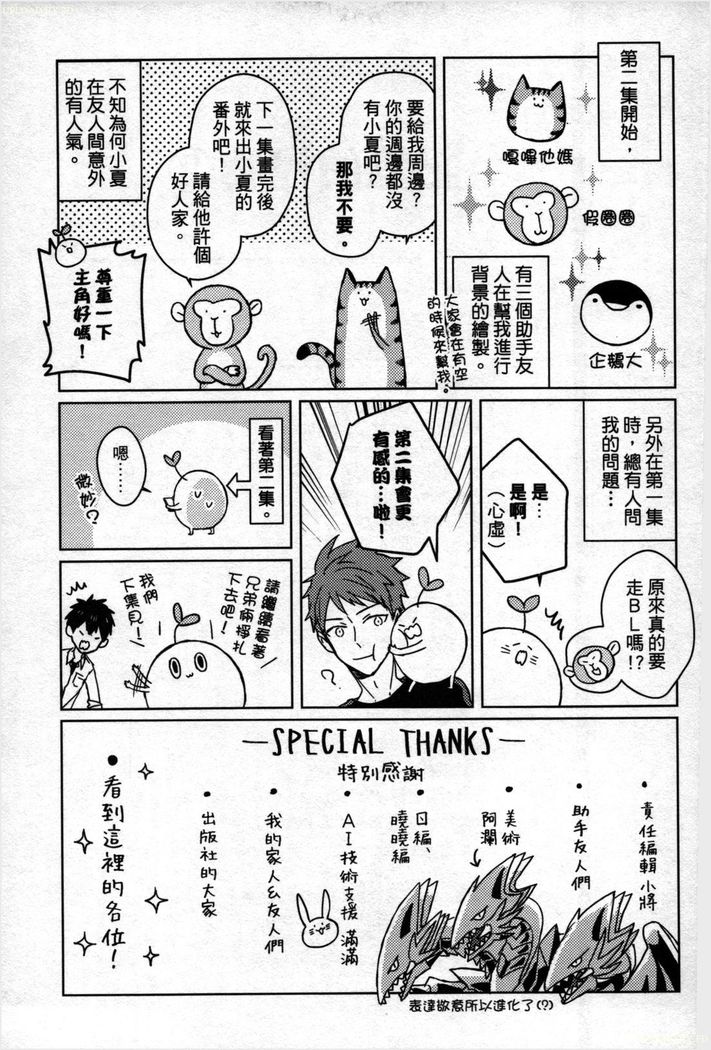 第二集開始，
嘎嗶他媽
假圈圈
企鵝大
有三個助手友
人在幫我進行
背景的繪製。
大家會在有空
的時候來幫我。
要給我周邊？
你的週邊都沒
有小夏吧？
那我不要。
下一集畫完後
就來出小夏的
番外吧！
請給他許個
好人家。
不知為何小夏
在友人間意外
的有人氣。
尊重一下
主角好嗎！
另外在第一集
時，總有人問
我的問題…
原來真的要
走BL嗎!?
是…
是啊！
（心虛）
第二集會更
有感的…啦！
？
看著第二集。
嗯……
微妙？
請繼續看著
兄弟倆掙扎
下去吧！
我們
下集見！
—SPECIAL THANKS—
特別感謝
•責任編輯小將
•助手友人們
•美術
阿瀾
•日編、
曉曉編
•AI技術支援 滿滿
•我的家人&友人們
•出版社的大家
•看到這裡的各位！
表達敬意所以進化了(?)